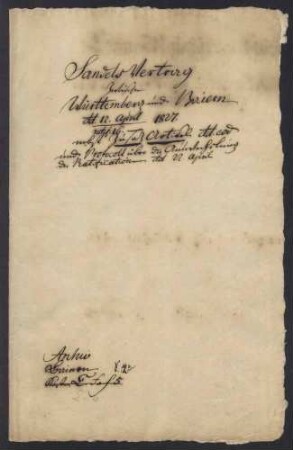 Handels Vertrag
zwischen
Württemberg und Baiern
dd 12. April 1827.
nebst Artikel dd eod
und Protocoll über die Auswechslung
der Ratificationen dd 22 April
Archiv
Baiern